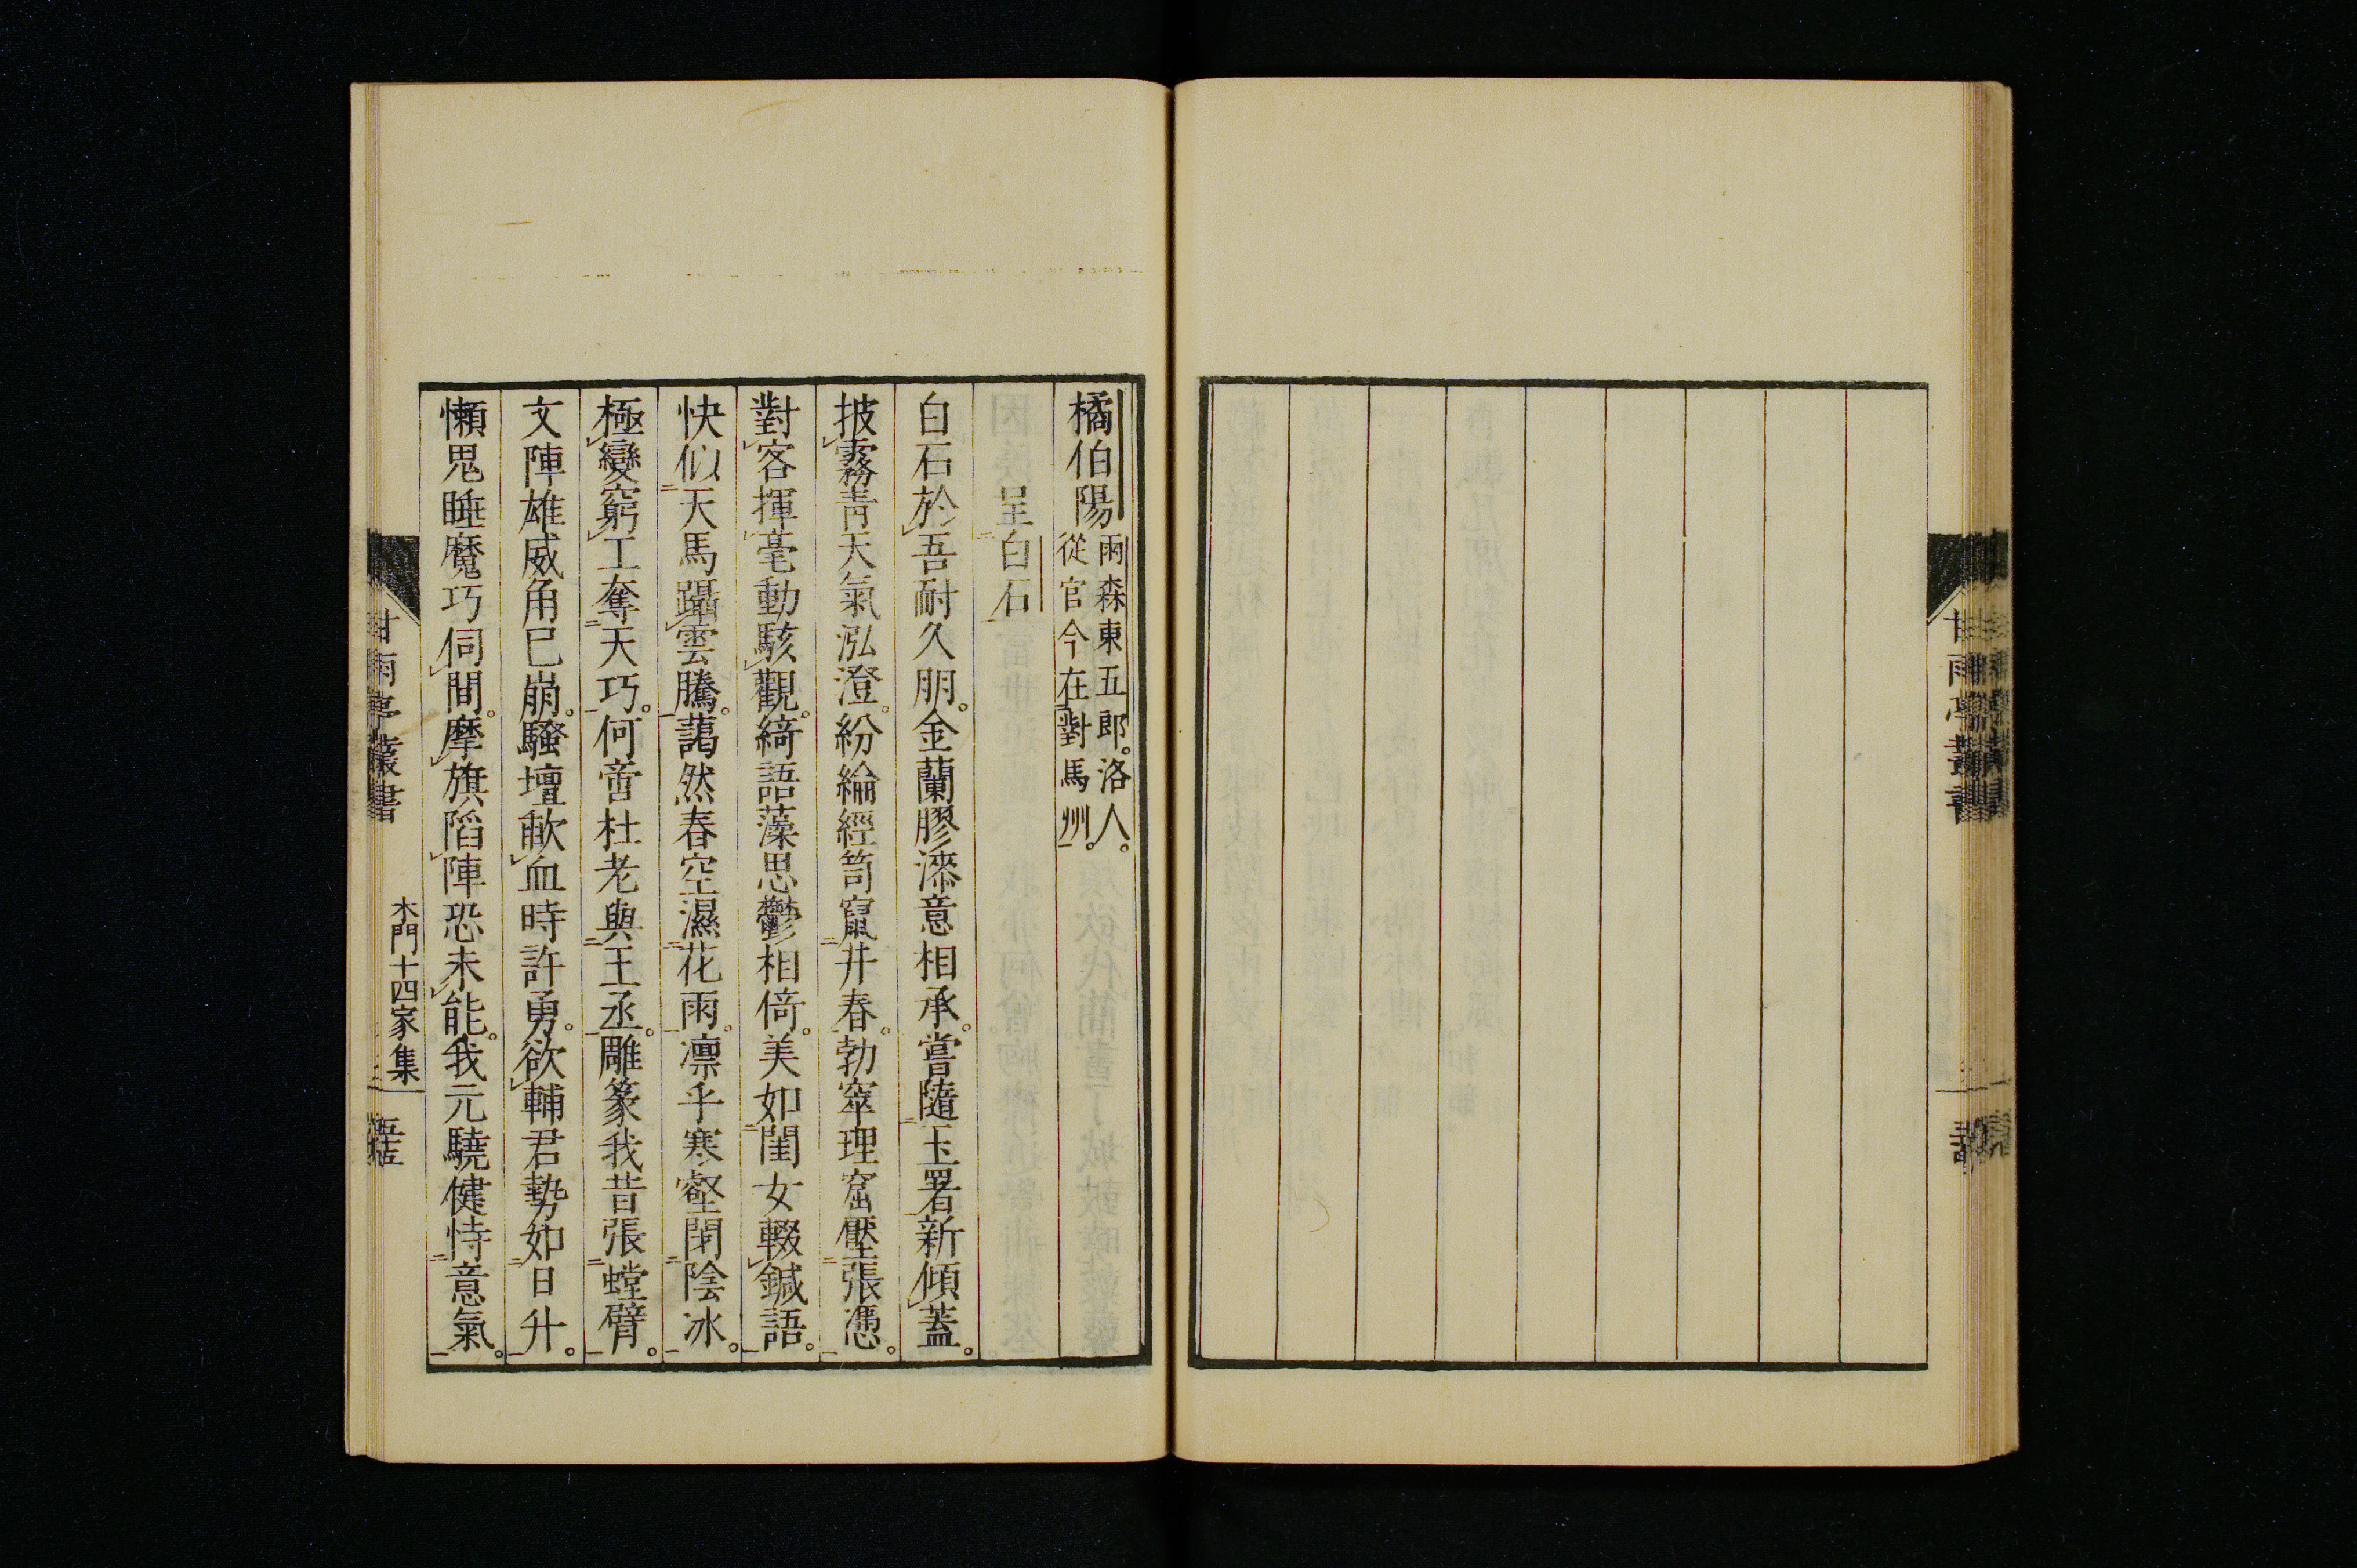 甘雨亭叢書
橘伯陽 雨森東五郎。洛人。
從官今在對馬州。
呈白石
白石於吾耐久朋。金蘭膠漆意相承。嘗隨玉署新傾蓋。
披霧青天氣泓澄。紛綸經笥窺井春。勃窣理窟壓張憑。
對客揮毫動駭觀。綺語藻思鬱相倚。美如閨女輟鍼語。
快似天馬躡雲騰。藹然春空濕花雨。凛乎寒壑閉陰冰。
極變窮工奪天巧。何啻杜老與王丞。雕篆我昔張螳臂。
文陣雄威角已崩。騷壇歃血時許勇。欲輔君勢如日升。
懶思睡魔巧伺間。摩旗陷陣恐未能。我元驍健恃意氣。
甘雨亭叢書
木門十四家集